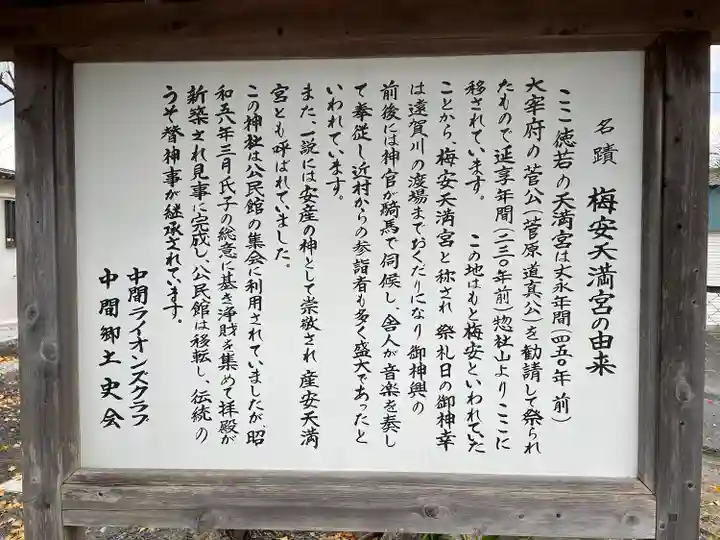 名蹟　梅安天満宮の由来
ここ徳若の天満宮は文永年間(四五〇年前)
大宰府の菅公(菅原道真公)を勧請して祭られ
たもので延享年間(二三〇年前)惣社山よりここに
移されています。　この地はもと梅安といわれていた
ことから、梅安天満宮と称され 祭礼日の御神幸
は遠賀川の渡場までおくだりになり御神輿の
前後には神官が騎馬で伺候し、舎人が音楽を奏し
て奉従し近村からの参詣者も多く盛大であったと
いわれています。
また、一説には安産の神として崇敬され 産安天満
宮とも呼ばれていました。
この神社は公民館の集会に利用されていましたが、昭
和五八年三月氏子の総意に基き浄財を集めて拝殿が
新築され見事に完成し、公民館は移転し、伝統の
うそ替神事が継承されています。
中間ライオンズクラブ
中間郷土史会